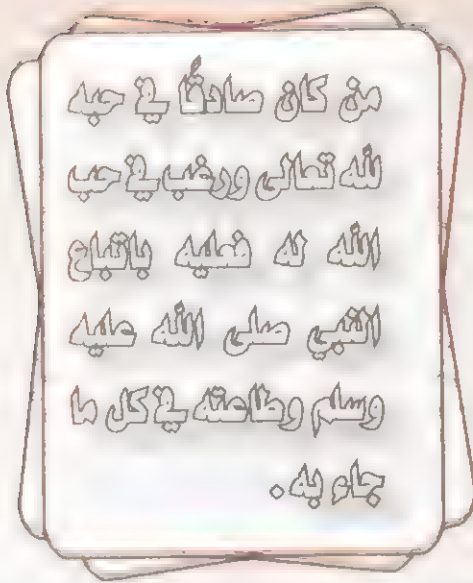 من كان صادقًا في حبه
لله تعالى ورغب في حب
الله له فعليه باتباع
النبي صلى الله عليه
وسلم وطاعته في كل ما
جاء به.